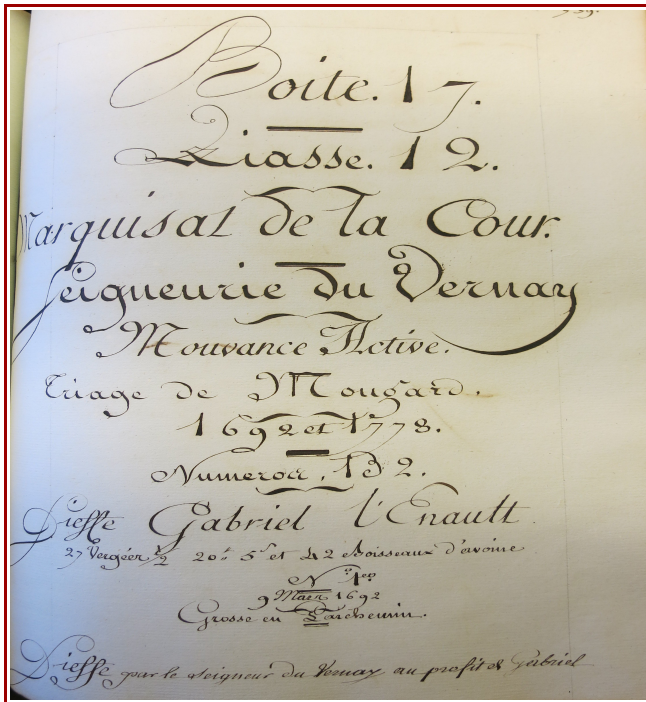 Boite. 17.
Liasse. 12.
Marquisat de la Cour.
Seigneurie du Vernay
Mouvance Active.
Triage de Mougard.
1692 et 1778.
Numeros, 132.
Fieffe Gabriel l'Enault
27 Vergées 1/2 20tt 5s et 42 Boisseaux d'avoine
N° 1er
9 Mars 1692
Grosse en Parchemin.
Fieffe par le seigneur du Vernay au profit de Gabriel